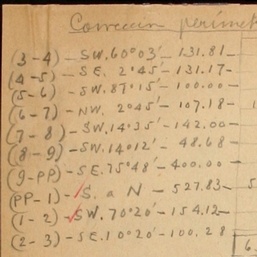 Correccion perimet
(3-4) - SW. 60°03' - 131.81 -
(4-5) - SE. 2°45' - 131.17 -
(5-6) - SW. 87°15' - 100.00 -
(6-7) - NW. 2°45' - 107.18 -
(7-8) - SW. 14°35' - 142.00 -
(8-9) - SW. 14°12' - 48.68
(9-PP) - SE. 75°48' - 400.00 -
(PP-1) - S. a N - 527.83 -
(1-2) - SW. 70°20' - 154.12 -
(2-3) - SE. 10°20' - 100.28